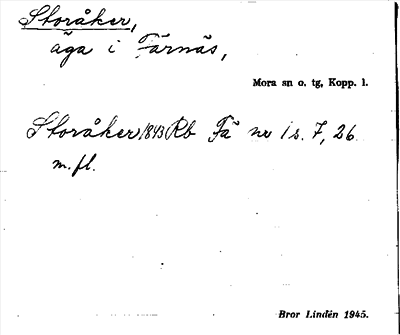 Storåker,
äga i Färnäs,
Mora sn o. tg, Kopp. l.
Storåker 1843 Rb Fä nr 1 s. 7, 26
m.fl.
Bror Lindén 1945.